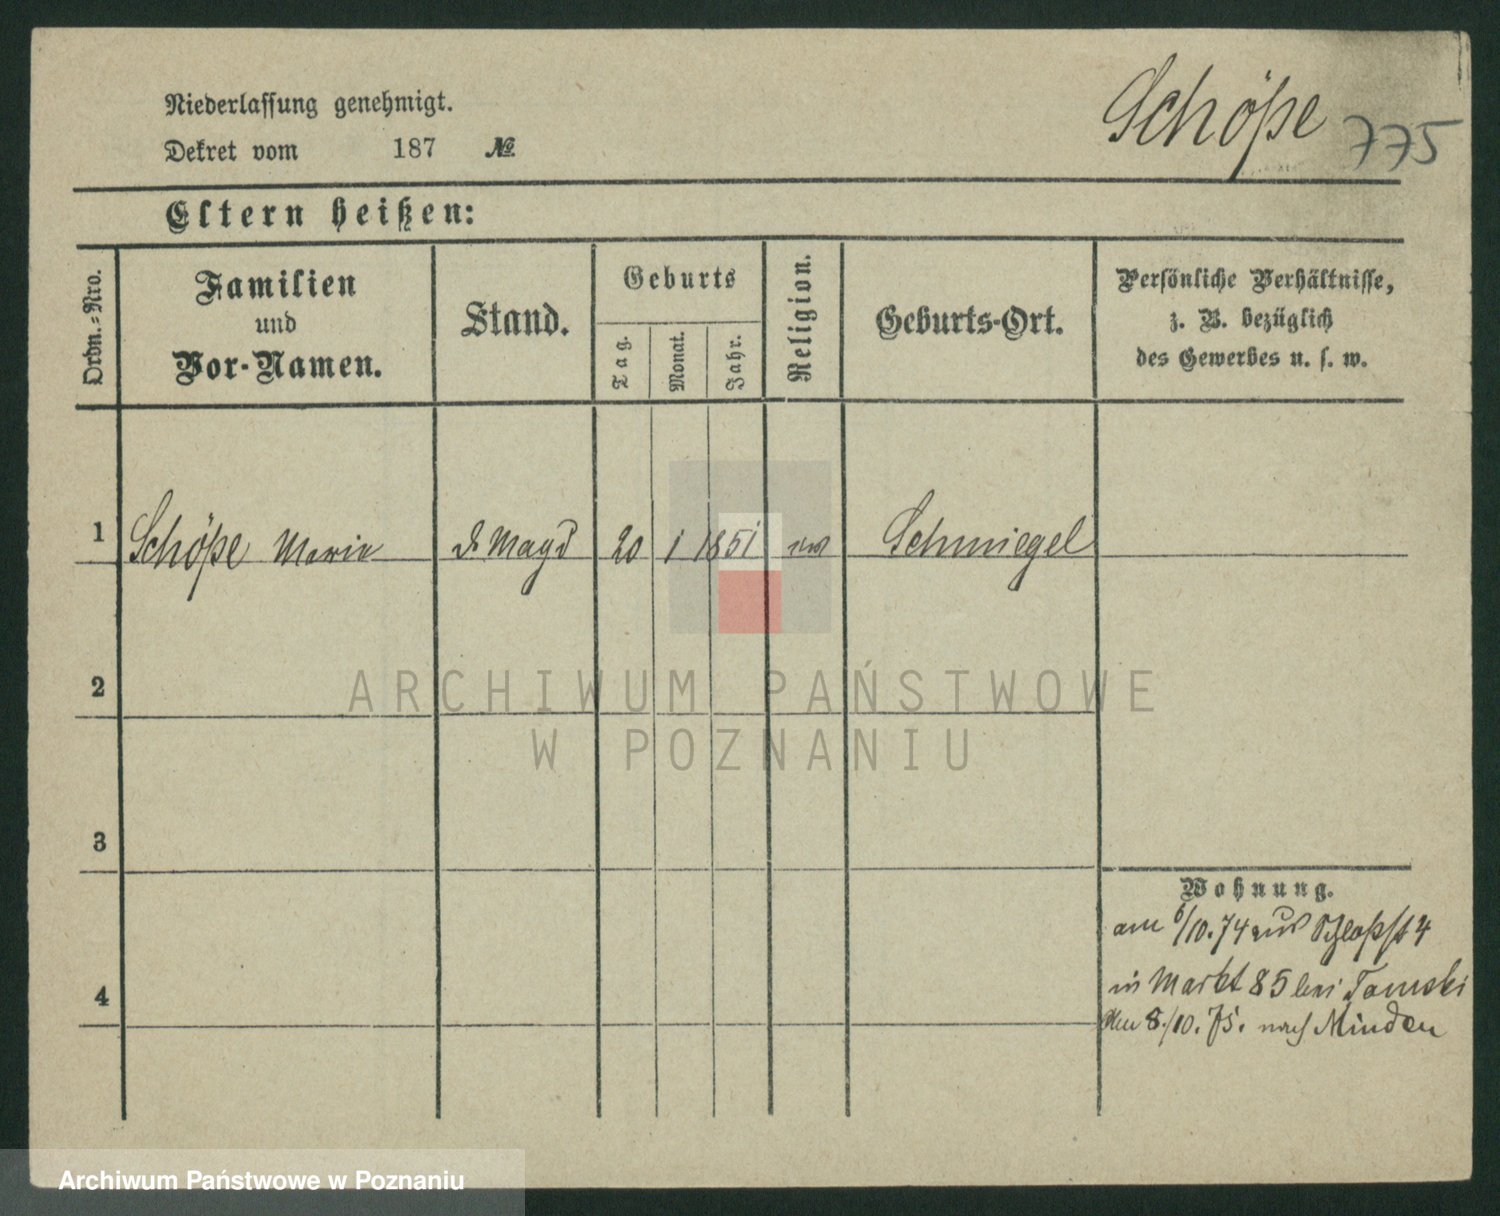 Niederlassung genehmigt.
Dekret vom 187 №
Schöpe 775
Eltern heißen:
Ordn.-Nro.
Familien
und
Vor-Namen.
Stand.
Geburts
Tag.
Monat.
Jahr.
Religion.
Geburts-Ort.
Persönliche Verhältnisse,
z. B. bezüglich
des Gewerbes u. s. w.
1 Schöpe Marie d. Magd 20 1 1851 ev Schmiegel
2
3
4
Wohnung.
am 6/10.74 aus Schloßst 4
in Markt 85 bei Tomski
den 8./10.75. nach Minden
ARCHIWUM PAŃSTWOWE
W POZNANIU
Archiwum Państwowe w Poznaniu